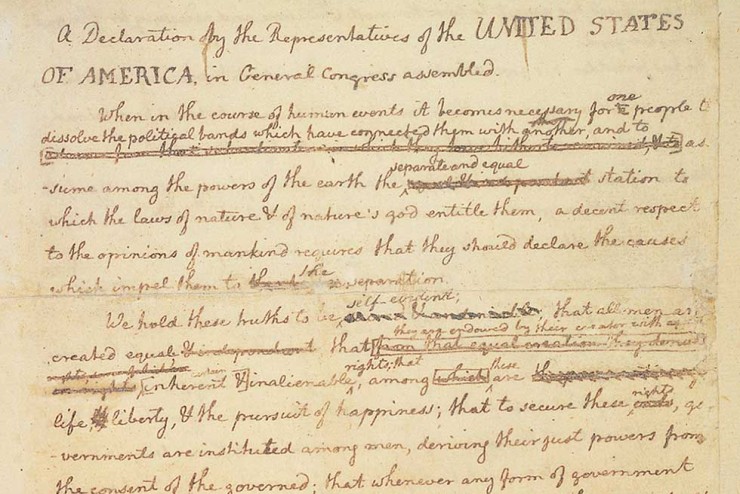 A Declaration by the Representatives of the UNITED STATES
OF AMERICA, in General Congress assembled.
When in the course of human events it becomes necessary for one people to
dissolve the political bands which have connected them with another, and to
as
separate and equal
-sume among the powers of the earth the station to
which the laws of nature & of nature's god entitle them, a decent respect
to the opinions of mankind requires that they should declare the causes
which impel them to the separation.
self-evident;
We hold these truths to be that all men are
they are endowed by their creator with
created equal & independent that from that equal creation they
rights; that
inherent & inalienable, among which these are
life, liberty, & the pursuit of happiness; that to secure these ends, rights go
-vernments are instituted among men, deriving their just powers from
the consent of the governed; that whenever any form of government